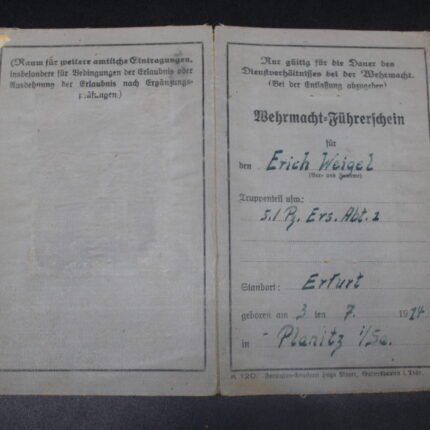 (Raum für weitere amtliche Eintragungen,
insbesondere für Bedingungen der Erlaubnis oder
Ausdehnung der Erlaubnis nach Ergänzungs-
prüfungen.)
Nur gültig für die Dauer des
Dienstverhältnisses bei der Wehrmacht.
(Bei der Entlassung abzugeben)
Wehrmacht-Führerschein
für
den Erich Weigel
(Vor- und Zuname)
Truppenteil usw.:
5./ Pz. Ers. Abt. 1
Standort: Erfurt
geboren am 3 ten 7. 1924
in Planitz i/Sa.